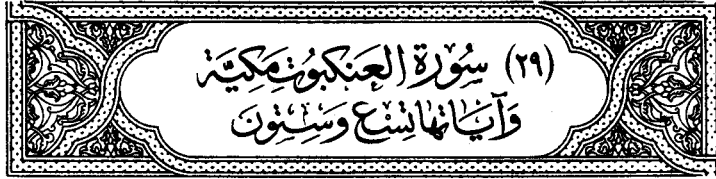 (٢٩) سُوْرَةُ الْعَنْكَبُوْتِ مَكِّيَّة
وَآيَاتُهَا تِسْعٌ وَسِتُّوْنَ